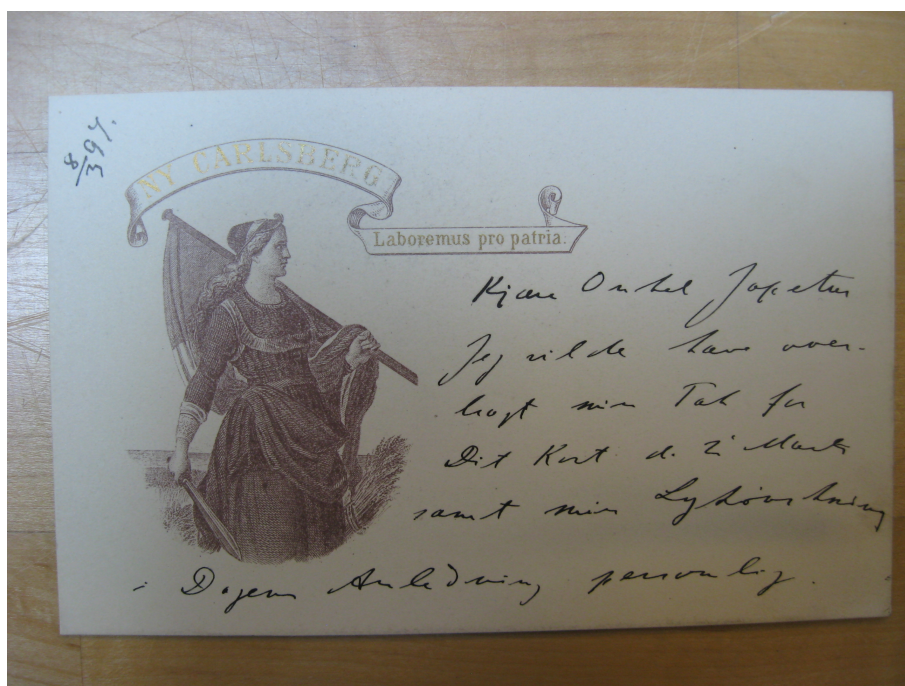 8/3 97.
NY CARLSBERG
Laboremus pro patria.
Kjære Onkel Japetus
Jeg vilde have over-
bragt min Tak for
Dit Kort d. 2' Marts
samt min Lykønskning
i Dagens Anledning personlig.